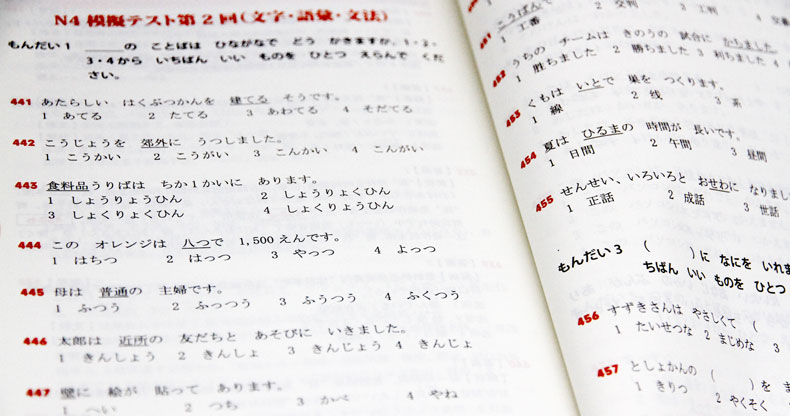 N4 模擬テスト第2回(文字・語彙・文法)
もんだい1 ＿＿＿の ことばは ひらがなで どう かきますか。1・2・
3・4から いちばん いい ものを ひとつ えらんで くだ
さい。
441 あたらしい はくぶつかんを 建てる そうです。
1 あてる 2 たてる 3 あわてる 4 そだてる
442 こうじょうを 郊外に うつしました。
1 こうかい 2 こうがい 3 こんかい 4 こんがい
443 食料品うりばは ちか1かいに あります。
1 しょうりょうひん 2 しょうりょくひん
3 しょくりょくひん 4 しょくりょうひん
444 この オレンジは 八つで 1,500えんです。
1 はちつ 2 はっつ 3 やっつ 4 よっつ
445 母は 普通の 主婦です。
1 ふつう 2 ふっつう 3 ふうつう 4 ふくつう
446 太郎は 近所の 友だちと あそびに いきました。
1 きんしょう 2 きんしょ 3 きんじょう 4 きんじょ
447 壁に 絵が 貼って あります。
1 へい 2 つち 3 かべ 4 やね
451 こうばんで
1 工番 2 交判 3 工判 4 交番
452 うちの チームは きのうの 試合に かちました
1 胜ちました 2 勝ちました 3 利ちました 4
453 くもは いとで 巣を つくります。
1 線 2 线 3 系
454 夏は ひる圭の 時間が 長いです。
1 日間 2 午間 3 昼間
455 せんせい、いろいろと おせわに なりまし
1 正話 2 成話 3 世話
もんだい3 (  )に なにを いれま
ちばん いい ものを ひとつ
456 すずきさんは やさしくて (
1 たいせつな 2 まじめな 3
457 としょかんの (  )を ま
1 きりつ 2 やくそく